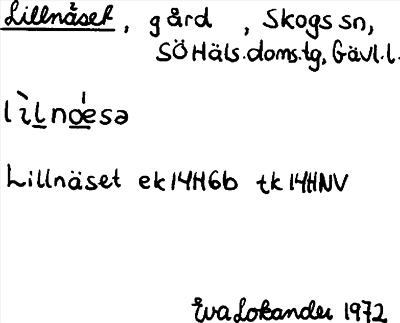 Lillnåset, gård, Skogs sn,
SÖHäls.doms.tg, Gävl.l.
lìlnœ́sə
Lillnäset ek14H6b tk14HNV
Eva Lokander 1972